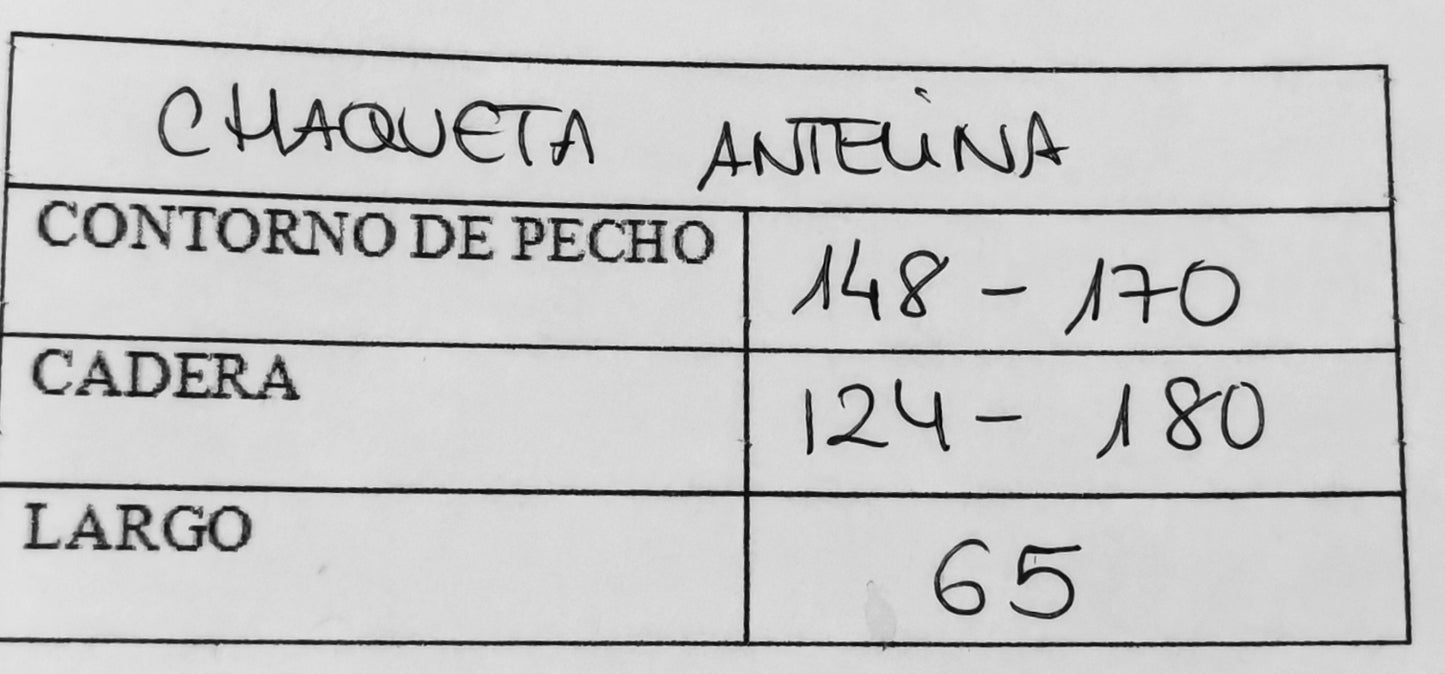 CHAQUETA ANTELINA
CONTORNO DE PECHO 148 - 170
CADERA 124 - 180
LARGO 65